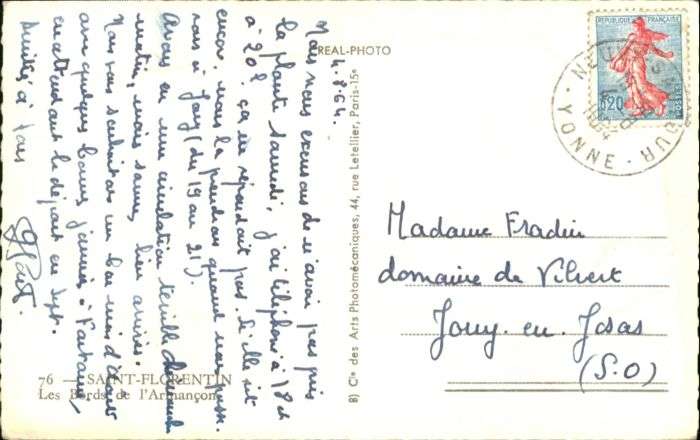 4.8.64.
Nous nous excusons de n'avoir pas pris
la plante samedi, j'ai téléphoné à 18 et
à 20h ça ne répondait pas. Si elle est
encore, nous la prendrons quand nous passe
rons à Jouy (du 19 au 21).
Avons eu une circulation terrible dimanche
matin, mais sommes bien arrivés.
Nous vous souhaitons un bon mois d'Août
avec quelques bonnes journées à
en attendant le départ en Sept.
Amitiés à tous
REAL-PHOTO
B) Cie des Arts Photomécaniques, 44, rue Letellier, Paris-15e
76 — SAINT-FLORENTIN
Les Bords de l'Armançon
REPUBLIQUE FRANÇAISE
0,20
POSTES
YONNE
Madame Fradin
domaine de Vilvert
Jouy. en. Josas
(S.O)